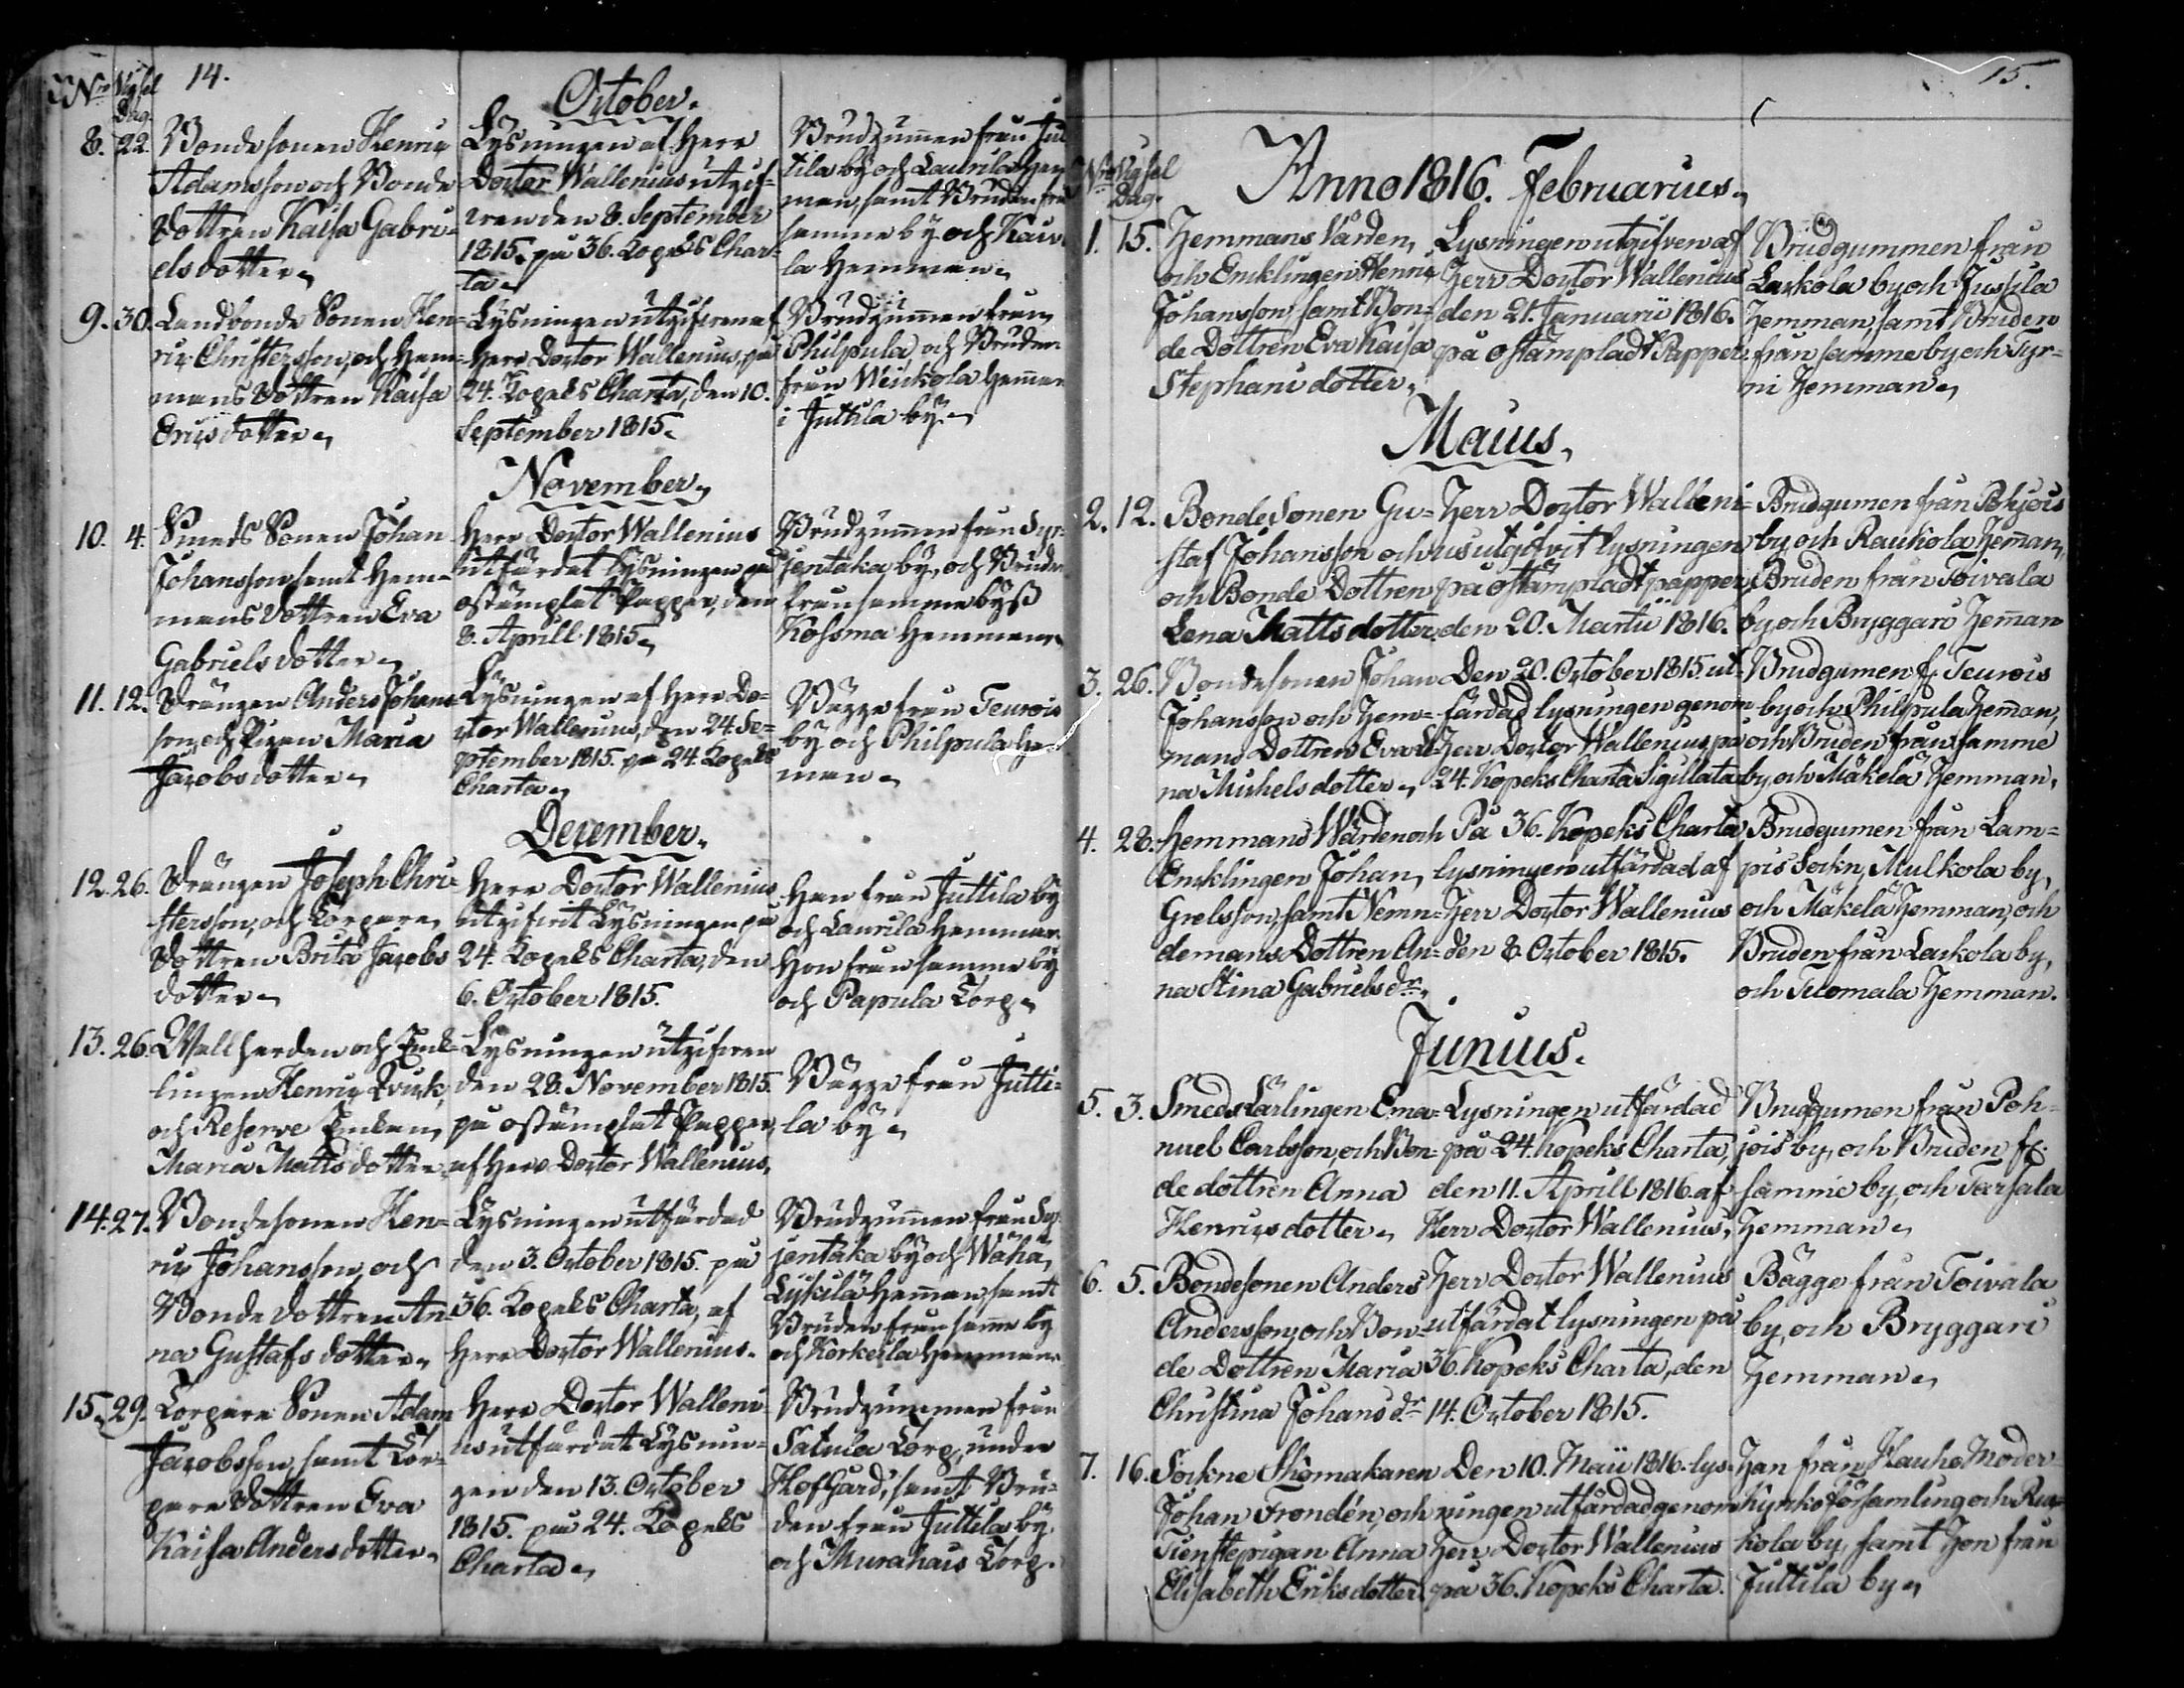 14.
Nro Vigsel Dag.
October.
8. 22. Bondesonen Henric
Adamsson och Bonde
dottren Kaisa Gabri-
elsdotter
Lysningen af Herr
Doctor Wallenius utgif-
ven den 8. September
1815. på 36. Kopeks Char-
ta
Brudgummen från Jut
tila by och Laurila Hem
man, samt Bruden från
samme by och Kaiv
la Hemman
9. 30. Landbonde Sonen Hen-
ric Christersson, och Hem-
mans Dottren Kaisa
Ericsdotter
Lysningen utgifven af
Herr Doctor Wallenius, på
24. Kopeks Charta, den 10.
September 1815.
Brudgummen från
Philpula och Bruden
från Weickola Hemman
i Juttila by
November
10. 4. Smeds Sonen Johan
Johansson samt Hem-
mans Dottren Eva
Gabrielsdotter
Herr Doctor Wallenius
utfärdat lysningen på
ostämplat Papper, den
8. Aprill 1815
Brudgummen från Syr-
jentaka by, och Bruden
från samme byß
Kossma Hemman
11. 12. Drängen Anders Johans-
son, och Pigan Maria
Jacobsdotter
Lysningen af Herr Do-
ctor Wallenius, den 24. Se-
ptember 1815. på 24. Kopeks
Charta
Bägge från Teurois
by och Philpula He
man
December.
12. 26. Drängen Joseph Chri-
stersson, och Torpare
Dottren Brita Jacobs
dotter
Herr Doctor Wallenius
utgifvit Lysningen på
24. Kopeks Charta, den
6. October 1815.
Han från Juttila by
och Laurila Hemman.
Hon från samme by
och Papula Torp
13. 26. Wallherden och Enk-
lingen Henric Qvick,
och Reserve Enkan
Maria Mattsdotter
Lysningen utgifven
den 28. November 1815.
på ostämplat Papper
af Herr Doctor Wallenius,
Bägge från Jutti-
la by
14. 27. Bondesonen Hen-
ric Johansson, och
Bonde dottren An-
na Gustafsdotter
Lysningen utfärdad
den 3. October 1815. på
36. Kopeks Charta, af
Herr Doctor Wallenius.
Brudgummen från Syr
jentaka by och Wähä,
Lyskilä Hemman, samt
Bruden från samme by
och Korkeila Hemman
15. 29. Torpare Sonen Adam
Jacobsson, samt Tor-
pare Dottren Eva
Kaisa Andersdotter
Herr Doctor Walleni-
us utfärdat Lysnin-
gen den 13. October
1815. på 24. Kopeks
Charta
Brudgummen från
Satula Torp, under
Hofgård, samt Bru-
den från Juttila by
och Murahais Torp.
15.
Nro Vigsel Dag.
Anno 1816. Februarius
1. 15. Hemmans Värden,
och Encklingen Henric
Johansson, samt Bon-
de Dottren Eva Kaisa
Stephans dotter
Lysningen utgifven af
Herr Doctor Wallenius
den 21. Januarii 1816.
på ostämpladt Papper
Brudgummen från
Laskola by och Jussila
Hemman, samt Bruden
från samme by och Tyr-
ni Hemman
Maius
2. 12. Bondesonen Gu-
staf Johansson och
och Bonde Dottren
Lena Matts dotter
Herr Doctor Walleni-
us utgifvit lysningen
på ostämpladt papper
den 20. Martii 1816.
Brudgumen från Pohjois
by och Raukola Hemman,
Bruden från Toivala
by och Bryggari Hemman
3. 26. Bondesonen Johan
Johansson och Hem-
mans Dottren Eva Le-
na Michelsdotter
Den 20. October 1815. ut-
färdad lysningen genom
Herr Doctor Wallenius, på
24. Kopeks Charta Sigillata
Brudgumen fr. Teurois
by och Philpula Hemman,
och Bruden från samme
by och Mäkelä Hemman,
4. 28. Hemmans Wärden och
Encklingen Johan
Grelsson, samt Nemn-
demans Dottren An-
na Stina Gabriels dr.
På 36. Kopeks Charta
lysningen utfärdad af
Herr Doctor Wallenius
den 8. October 1815.
Brudgumen från Lam-
pis Sockn, Mulkola by,
och Mäkelä Hemman, och
Bruden från Laskola by,
och Tuomala Hemman.
Junius.
5. 3. Smeds Lärlingen Ema-
nuel Carlsson, och Bon-
de dottren Anna
Henricsdotter
Lysningen utfärdad
på 24. Kopeks Charta,
den 11. Aprill 1816. af
Herr Doctor Wallenius,
Brudgumen från Poh-
jois by, och Bruden fr.
samme by, och Tarsala
Hemman
6. 5. Bondesonen Anders
Andersson, och Bon-
de Dottren Maria
Christina Johans dr
Herr Doctor Wallenius
utfärdat lysningen på
36. Kopeks Charta, den
14. October 1815.
Bägge från Toivala
by och Bryggari
Hemman
7. 16. Sockne Skomakaren
Johan Frondén, och
Tienstepigan Anna
Elisabeth Eriksdotter.
Den 10. Maii 1816. lys-
ningen utfärdad genom
Herr Doctor Wallenius
på 36. Kopeks Charta.
Han från Hauho Moder-
Kyrko församling och Ru
kola by, samt Hon från
Juttila by